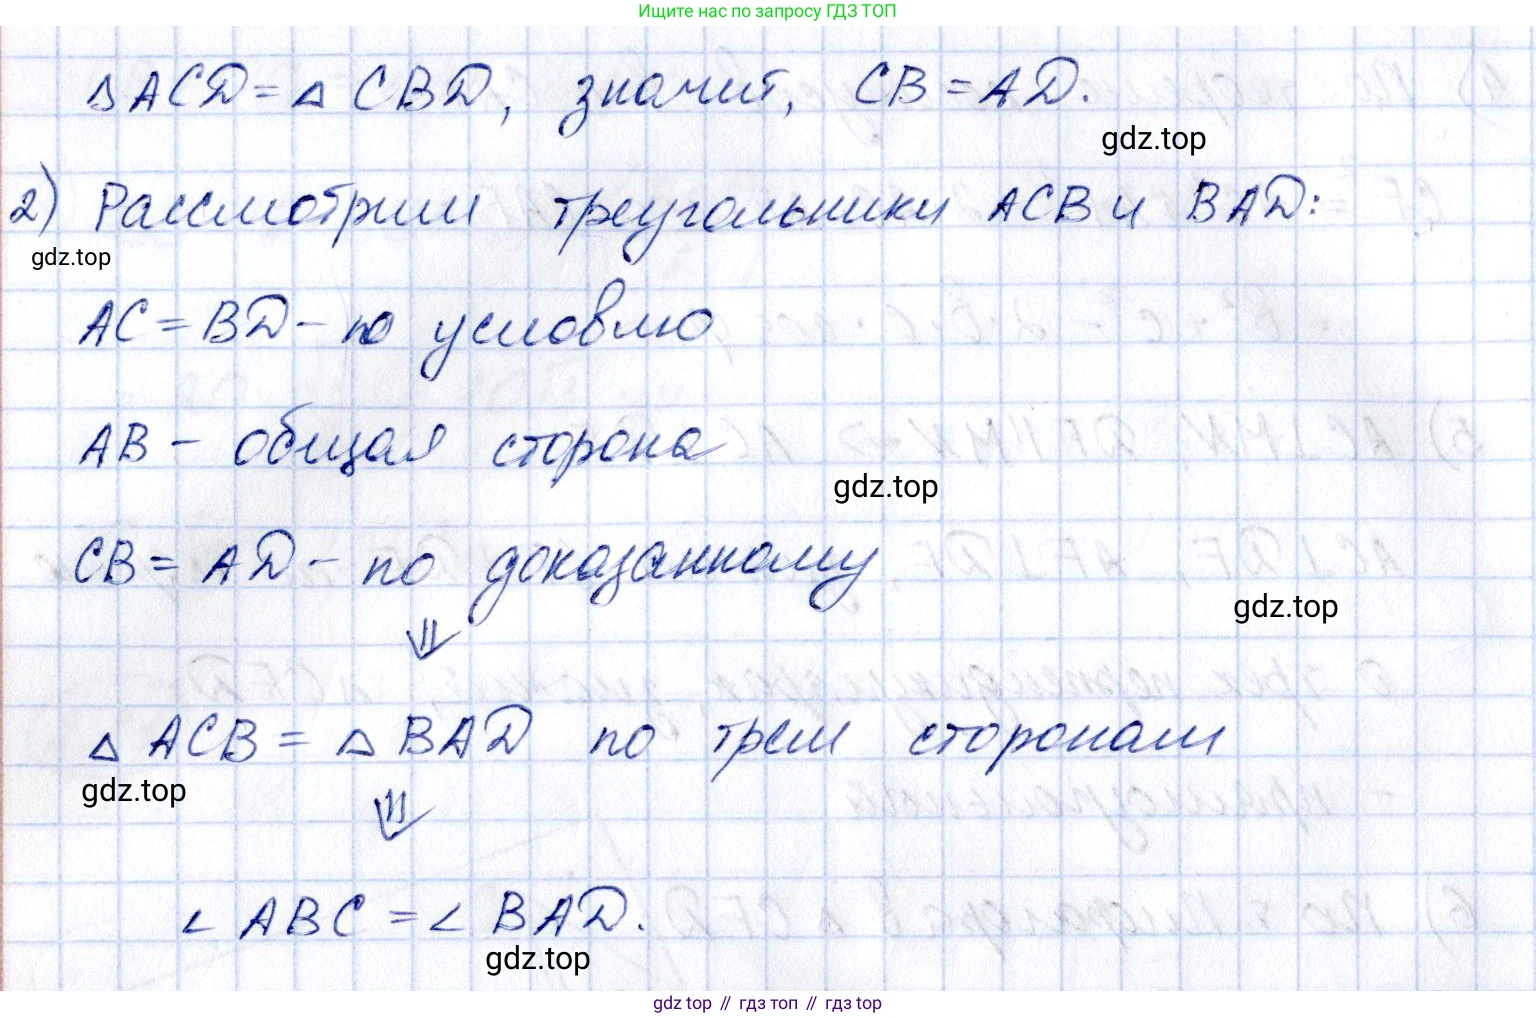 Ищите нас по запросу ГДЗ ТОП
△ ACD = △ CBD, значит, CB = AD.
gdz.top
2) Рассмотрим треугольники ACB и BAD:
gdz.top
AC = BD – по условию
AB – общая сторона
gdz.top
CB = AD – по доказанному
gdz.top
⇓
△ ACB = △ BAD по трем сторонам
gdz.top
⇓
∠ ABC = ∠ BAD.
gdz.top
gdz top // гдз топ // гдз top